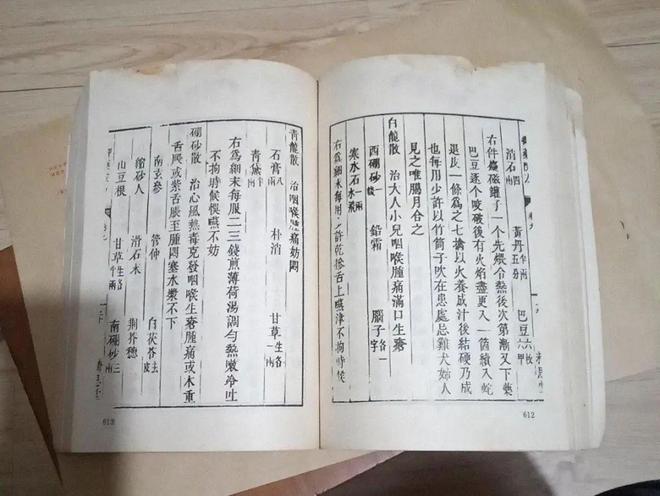 消石四兩 黃丹五分 巴豆六枚
右件藥磁罐子一个先煨令熱後次第漸又下藥
巴豆逐个咬破後有火焰盡更入一箇續入蛇
退皮一條為之七擒以火養成汁後結硬乃成
也每用少許以竹筒子吹在患處忌雞犬婦人
見之唯腸月合之
白龍散 治大人小兒咽喉腫痛滿口生瘡
西硼砂 鉛霜 腦子
寒水石
右為細末每用少許乾摻舌上嚥津不拘時候
612
青龍散 治咽喉腫痛妨悶
石膏八兩 朴消 甘草生
青黛半兩
右為細末每服二三錢煎薄荷湯調勻熱嗽冷吐
不拘時候悞嚥不妨
硼砂散 治心風熱毒克發咽喉生瘡腫痛或木重
舌脹或紫舌脹至腫悶塞水漿不下
南玄參 管仲 白茯苓去皮
縮砂人 滑石末 荊芥穗
山豆根 甘草生 南硼砂三兩
613